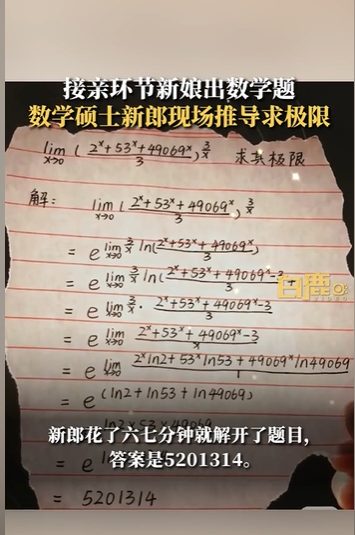 接亲环节新娘出数学题
数学硕士新郎现场推导求极限
lim x→0 (2^x+53^x+49069^x / 3)^(3/x) 求其极限
解: lim x→0 (2^x+53^x+49069^x / 3)^(3/x)
= e^(lim x→0 3/x ln(2^x+53^x+49069^x / 3))
= e^(lim x→0 3/x ln(2^x+53^x+49069^x-3 / 3
白鹿
VIDEO
= e^(lim x→0 3/x · 2^x+53^x+49069^x-3 / 3)
= e^(lim x→0 2^x+53^x+49069^x-3 / x)
= e^(lim x→0 2^x ln2+53^x ln53+49069^x ln49069 / 1)
= e^(ln2+ln53+ln49069)
新郎花了六七分钟就解开了题目,
答案是5201314。
= e
= 5201314